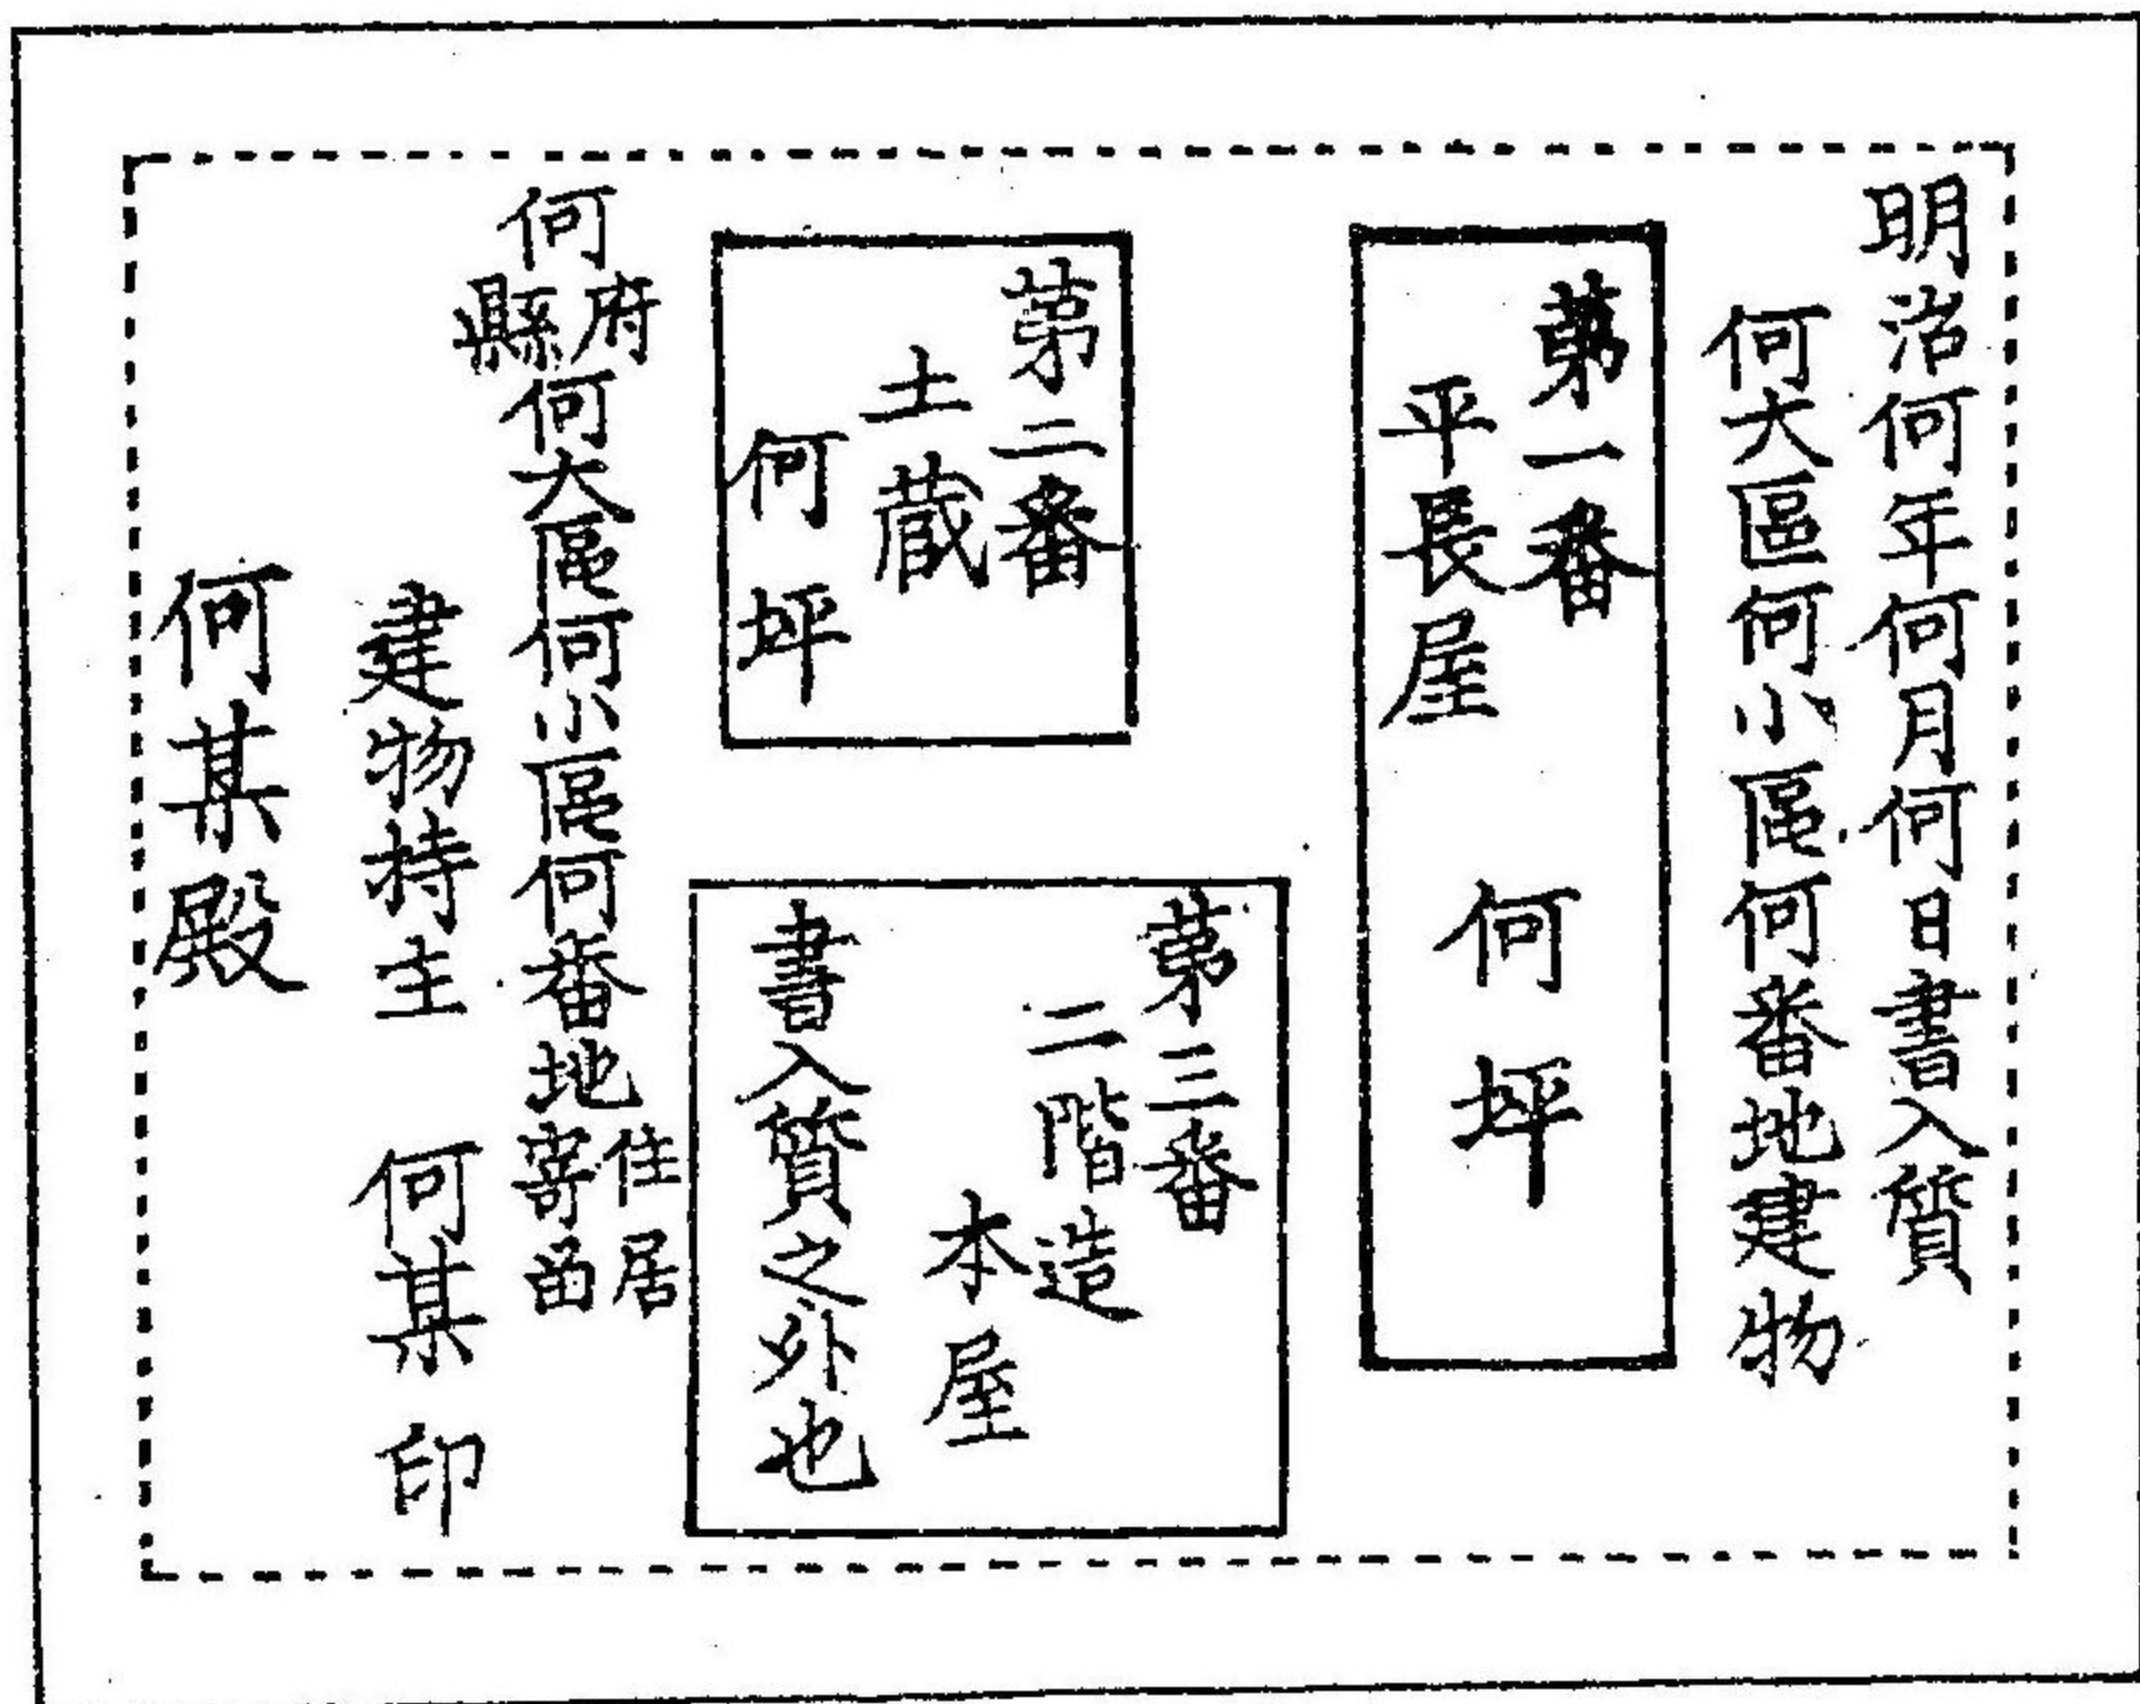 明治何年何月何日書入質
何大區何小區何番地建物
第一番
平長屋　何坪
第二番
土蔵
何坪
第三番
二階造
本屋
書入質之外也
何府縣何大區何小區何番地住居寄留
建物持主　何某印
何某殿